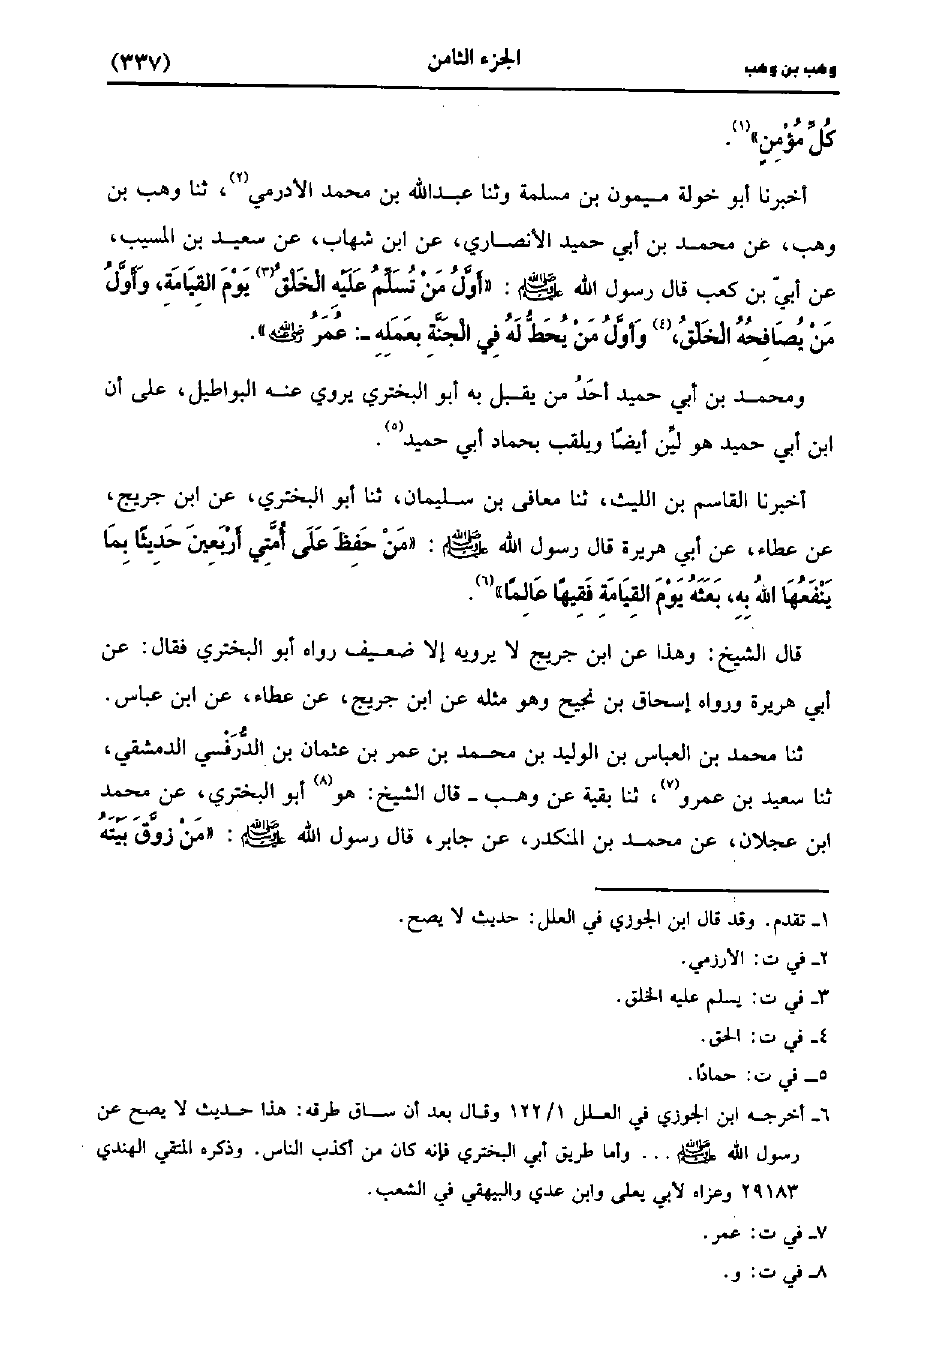 وهب بن وهب الجزء الثامن (٣٣٧)
كُلِّ مُؤْمِنٍ»(١).
أخبرنا أبو خولة ميمون بن مسلمة وثنا عبدالله بن محمد الأدرمي(٢)، ثنا وهب بن
وهب، عن محمد بن أبي حميد الأنصاري، عن ابن شهاب، عن سعيد بن المسيب،
عن أبيّ بن كعب قال رسول الله ﷺ : «أَوَّلُ مَنْ تُسَلِّمُ عَلَيْهِ الخَلْقُ(٣) يَوْمَ القِيَامَةِ، وَأَوَّلُ
مَنْ يُصَافِحُهُ الخَلَقُ،(٤) وَأَوَّلُ مَنْ يُحَطُّ لَهُ فِي الجَنَّةِ بِعَمَلِهِ ـ: عُمَرُ ﵁».
ومحمد بن أبي حميد أحَدُ من يقبل به أبو البختري يروي عنه البواطيل، على أن
ابن أبي حميد هو ليِّن أيضًا ويلقب بحماد أبي حميد(٥).
أخبرنا القاسم بن الليث، ثنا معافى بن سليمان، ثنا أبو البختري، عن ابن جريج،
عن عطاء، عن أبي هريرة قال رسول الله ﷺ : «مَنْ حَفِظَ عَلَى أُمَّتِي أَرْبَعِينَ حَدِيثًا بِمَا
يَنْفَعُهَا اللهُ بِهِ، بَعَثَهُ يَوْمَ القِيَامَةِ فَقِيهًا عَالِمًا»(٦).
قال الشيخ: وهذا عن ابن جريج لا يرويه إلا ضعيف رواه أبو البختري فقال: عن
أبي هريرة ورواه إسحاق بن نجيح وهو مثله عن ابن جريج، عن عطاء، عن ابن عباس.
ثنا محمد بن العباس بن الوليد بن محمد بن عمر بن عثمان بن الدُّرَفْسي الدمشقي،
ثنا سعيد بن عمرو(٧)، ثنا بقية عن وهب ـ قال الشيخ: هو(٨) أبو البختري، عن محمد
ابن عجلان، عن محمد بن المنكدر، عن جابر، قال رسول الله ﷺ : «مَنْ زَوَّقَ بَيْتَهُ
١ـ تقدم. وقد قال ابن الجوزي في العلل: حديث لا يصح.
٢ـ في ت: الأرزمي.
٣ـ في ت: يسلم عليه الخلق.
٤ـ في ت: الحق.
٥ـ في ت: حمادًا.
٦ـ أخرجه ابن الجوزي في العلل ١٢٢/١ وقال بعد أن ساق طرقه: هذا حديث لا يصح عن
رسول الله ﷺ ... وأما طريق أبي البختري فإنه كان من أكذب الناس. وذكره المتقي الهندي
٢٩١٨٣ وعزاه لأبي يعلى وابن عدي والبيهقي في الشعب.
٧ـ في ت: عمر.
٨ـ في ت: و.